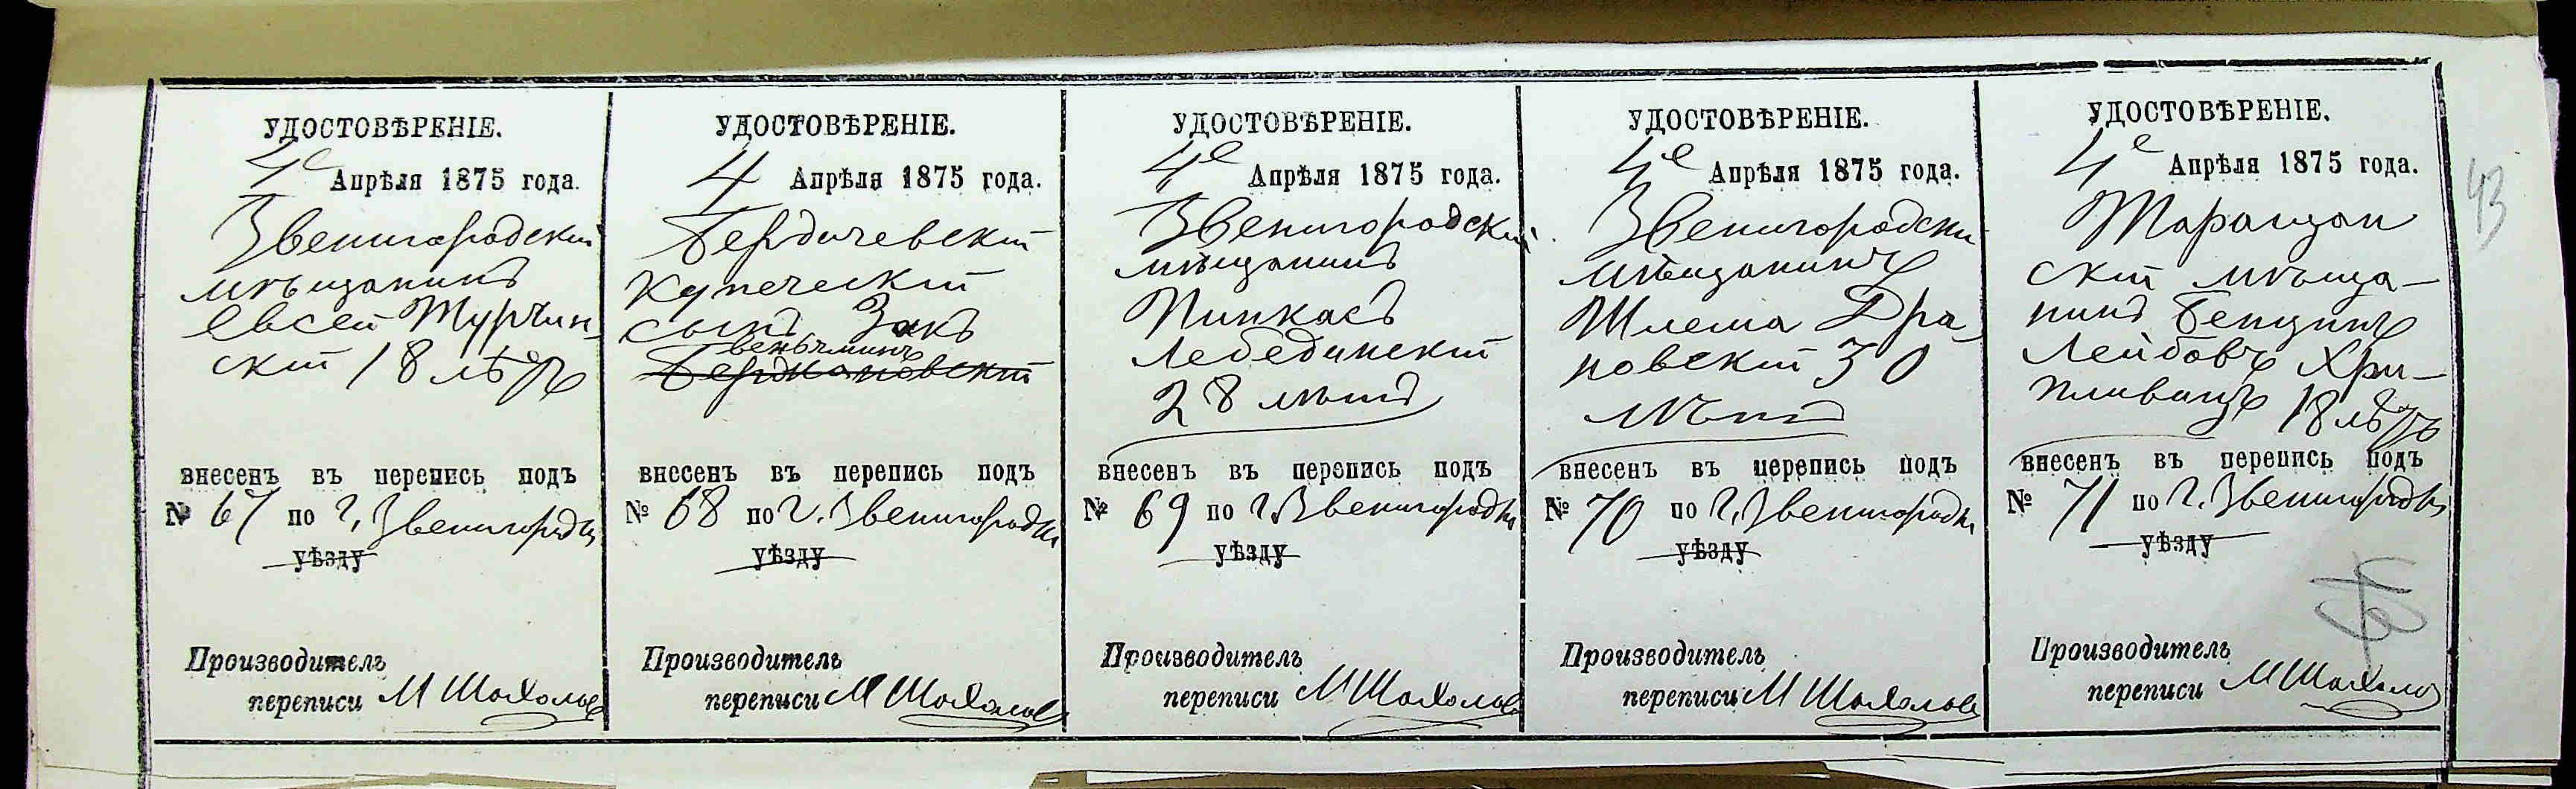 УДОСТОВѢРЕНІЕ.
4е Апрѣля 1875 года.
Звенигородскій
мѣщанинъ
Евсей Турчин-
скій 18 лѣтъ
внесенъ въ перепись подъ
№ 67 по г. Звенигородки
уѣзду
Производитель
переписи М
УДОСТОВѢРЕНІЕ.
4 Апрѣля 1875 года.
Бердичевскій
Купеческій
сынъ Закъ
Веньяминъ
внесенъ въ перепись подъ
№ 68 по г. Звенигородки
уѣзду
Производитель
переписи М
УДОСТОВѢРЕНІЕ.
4е Апрѣля 1875 года.
Звенигородскій
мѣщанинъ
Пинкасъ
Лебединскій
28 лѣтъ
внесенъ въ перепись подъ
№ 69 по г. Звенигородки
уѣзду
Производитель
переписи М
УДОСТОВѢРЕНІЕ.
4е Апрѣля 1875 года.
Звенигородскій
мѣщанинъ
Шлема Дра
новскій 30
лѣтъ
внесенъ въ перепись подъ
№ 70 по г. Звенигородки
уѣзду
Производитель
переписи М
УДОСТОВѢРЕНІЕ.
4е Апрѣля 1875 года.
Таращан
скій мѣща-
нинъ Бенционъ
Лейбовъ Хри-
пливецъ 18 лѣтъ
внесенъ въ перепись подъ
№ 71 по г. Звенигородки
уѣзду
Производитель
переписи М
43